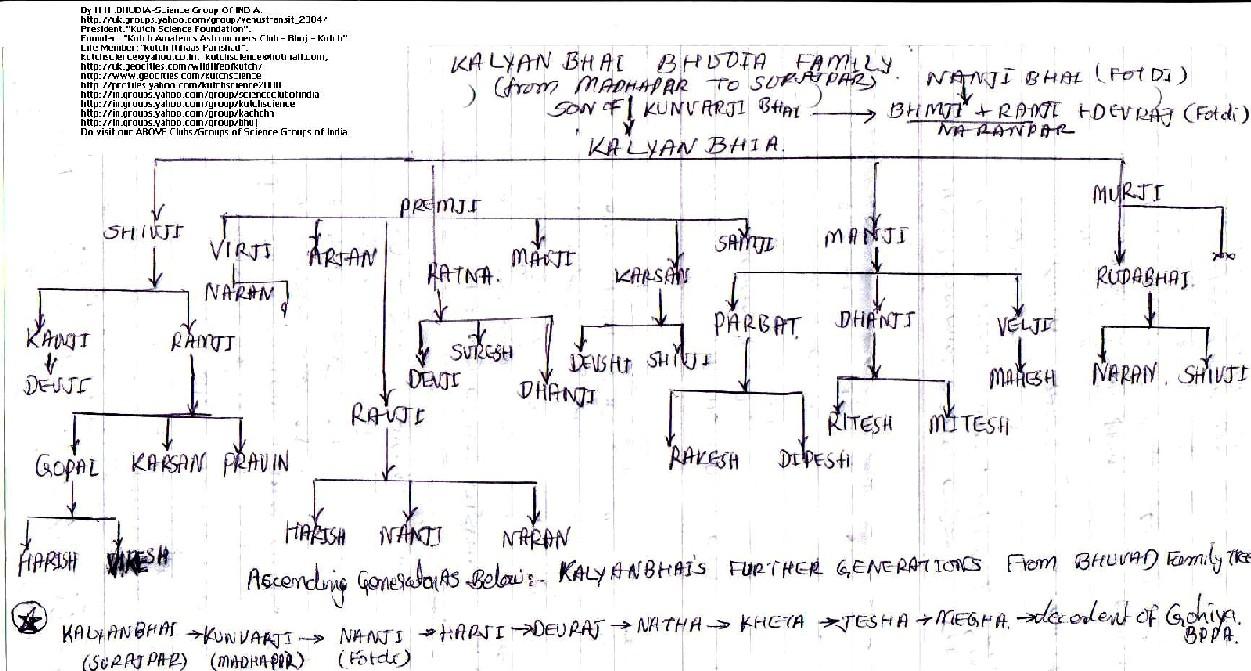 By DHUDIA-Science Group Of INDIA.
http://uk.groups.yahoo.com/group/venustransit_2004/
President."Kutch Science Foundation".
Founder "Kutch Amateurs Astronomers Club - Bhuj - Kutch"
Life Member:"Kutch Itihaas Parishad".
kutchscience@yahoo.co.in, kutchscience@hotmail.com,
http://uk.geocities.com/wildlifeofkutch/
http://www.geocities.com/kutchscience
http://in.groups.yahoo.com/group/scienceclubofindia
http://in.groups.yahoo.com/group/kutchscience
http://in.groups.yahoo.com/group/kachchh
http://in.groups.yahoo.com/group/bhuj
Do visit our ABOVE Clubs/Groups of Science Groups of India
KALYAN BHAI BHUDIA FAMILY.
(from MADHAPAR TO SURAJPAR)
NANJI BHAI (FOTDI)
SON OF KUNVARJI BHAI
BHIMJI + RAMJI + DEVRAJ (Fotdi)
NARANPAR
KALYAN BHIA.
SHIVJI PREMJI MANJI MURJI
VIRJI ARJAN RATNA. MAVJI KARSAN SAMJI
NARAN
RUDABHAI
KANJI RAMJI
PARBAT DHANJI VELJI
DEVJI
DEVJI SURESH DHANJI
DEVSHI SHIVJI
MAHESH NARAN SHIVJI
RAVJI
RITESH MITESH
GOPAL KARSAN PRAVIN
RAKESH DIPESH
HARISH NANJI NARAN
HARISH
Ascending Generation As Below:- KALYANBHAI'S FURTHER GENERATIONS From BHUVAD Family TREE
KALYANBHAI → KUNVARJI → NANJI → HARJI → DEVRAJ → NATHA → KHETA → JESHA → MEGHA. → decodent of Gohiya.
(SURAJPAR) (MADHAPAR) (Fotdi)